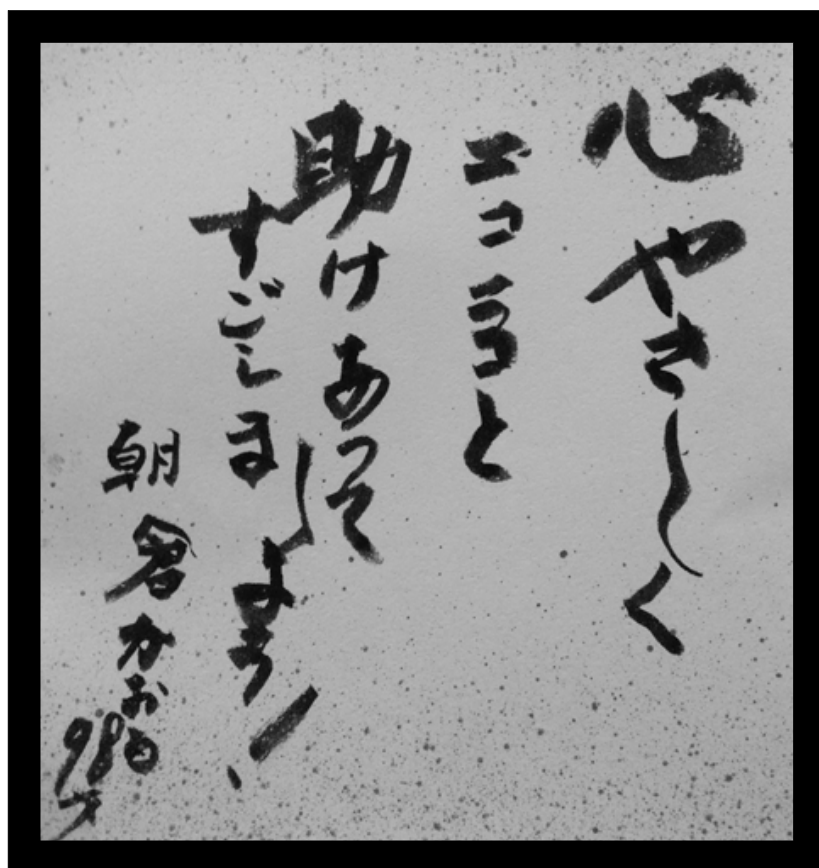 心やさしく
ニコニコと
助けあって
すごしましょう!
朝倉かおる
98才